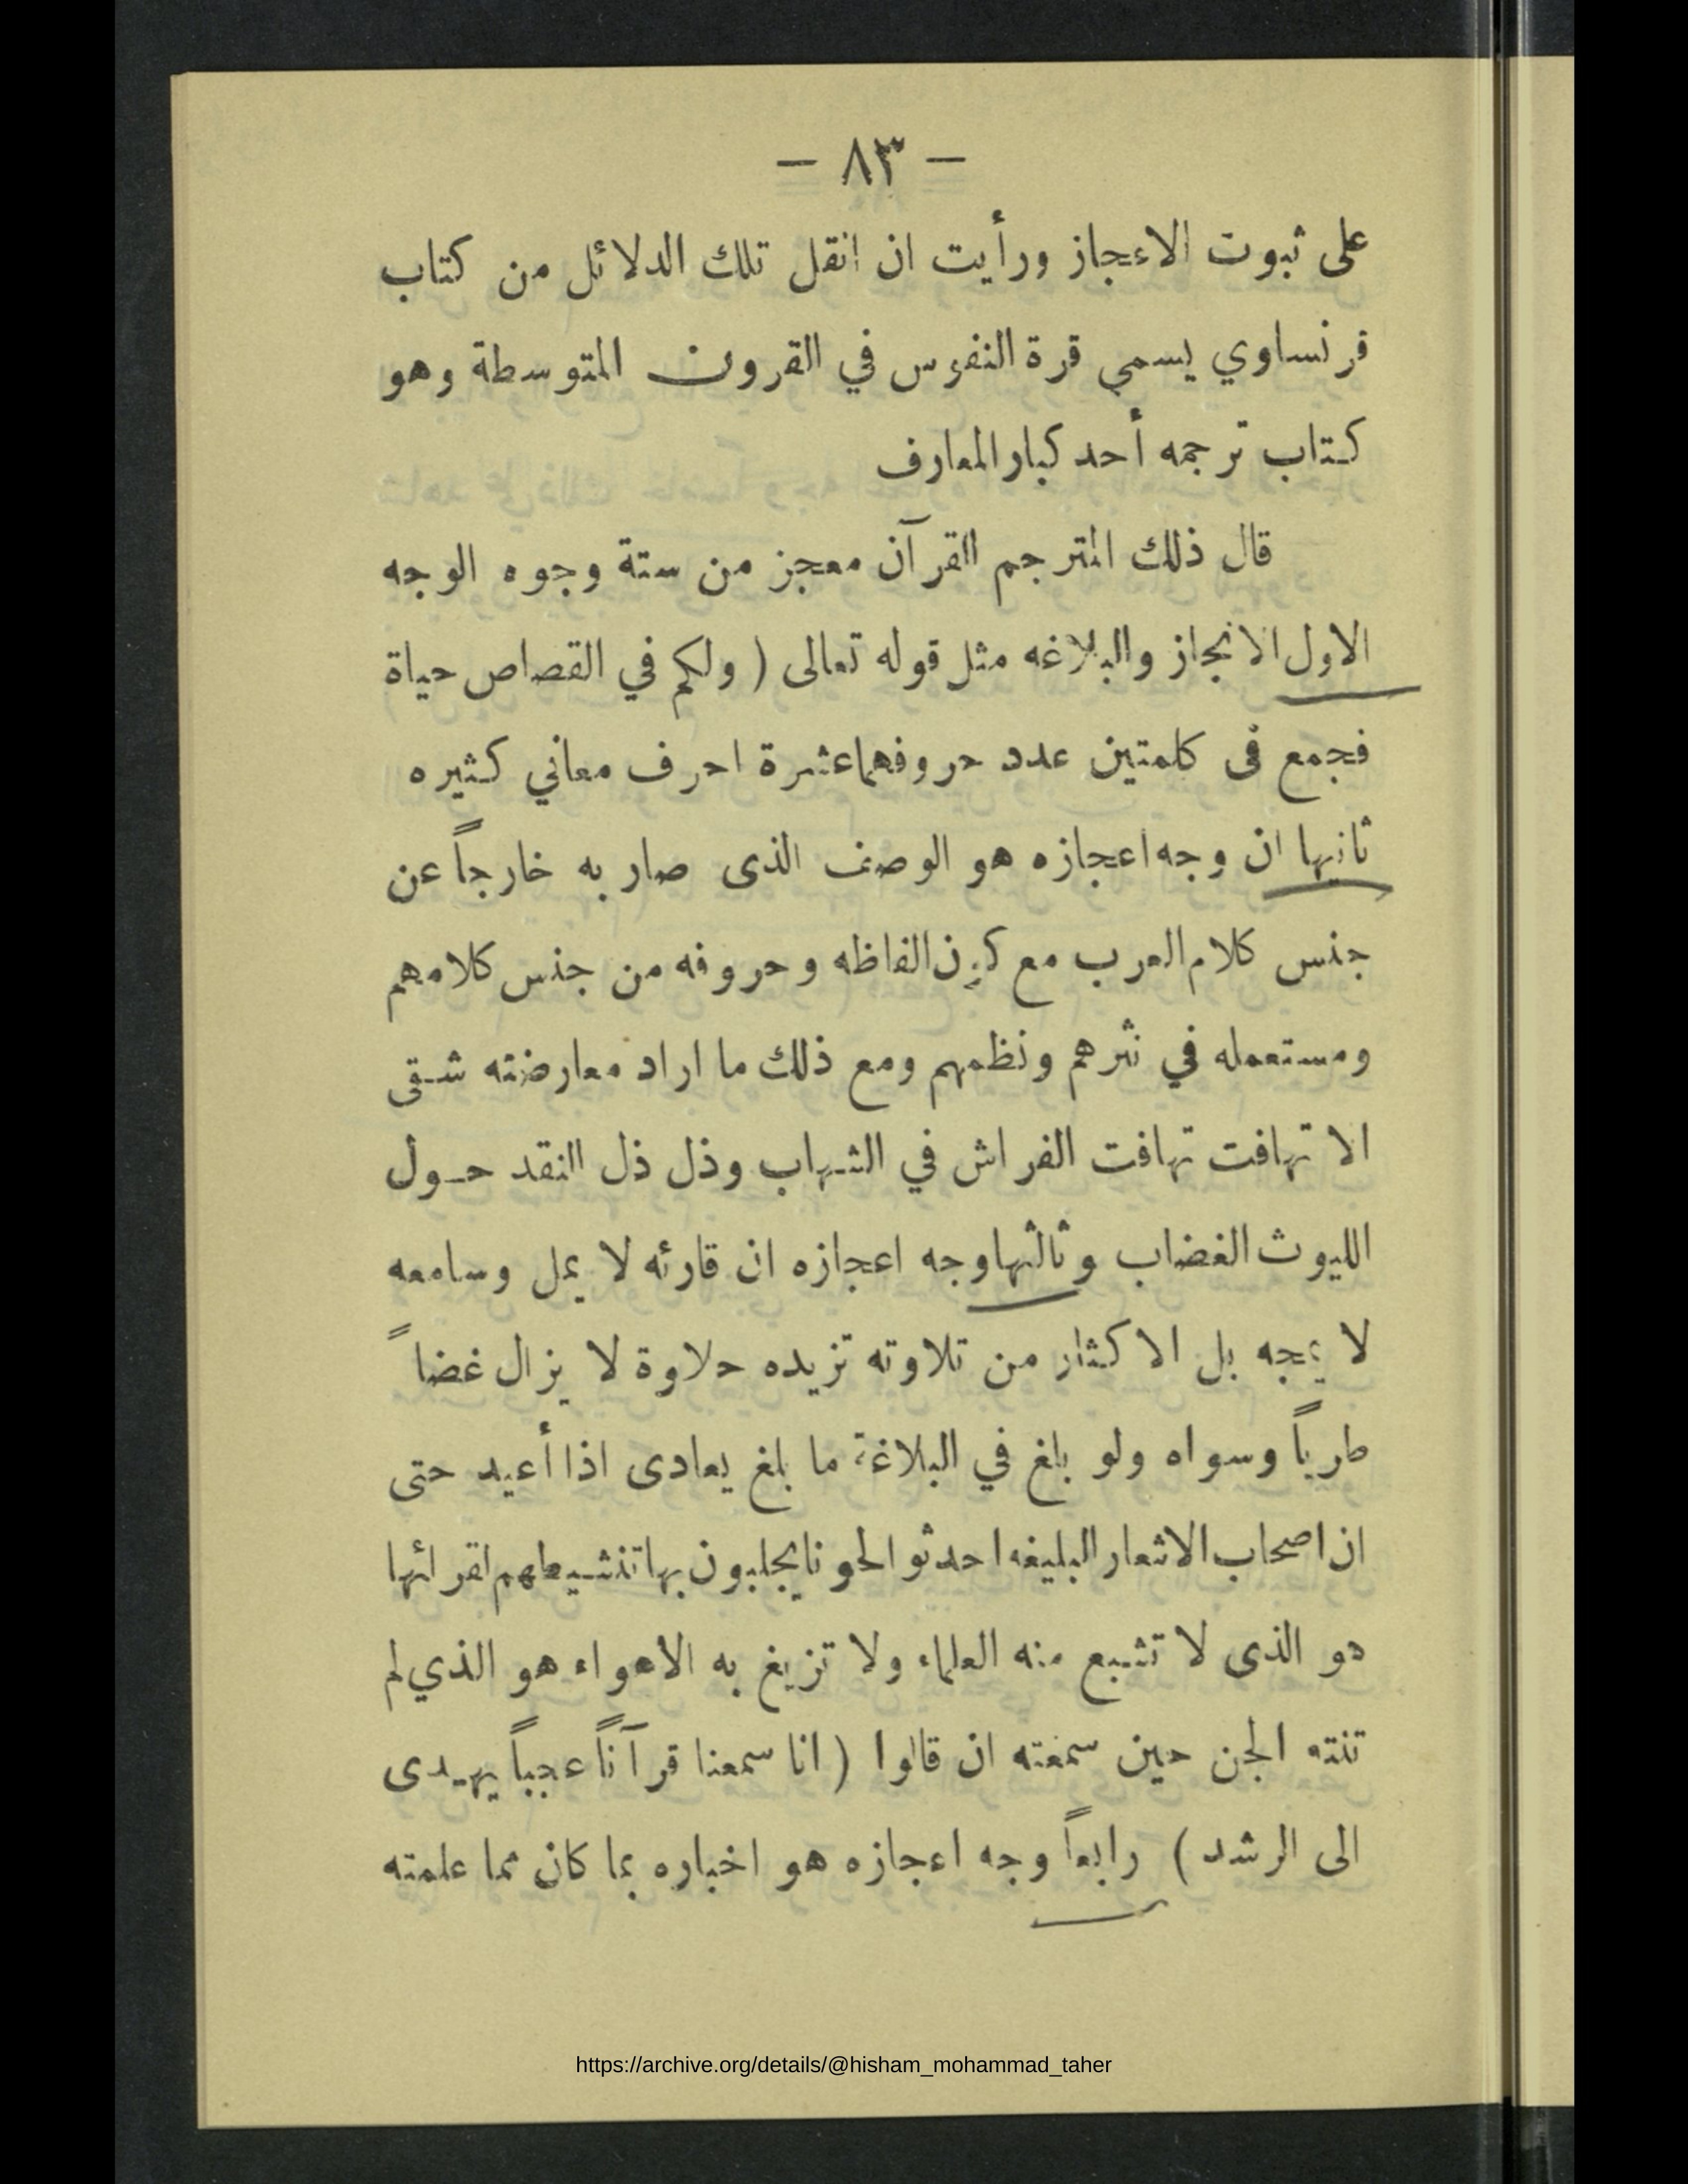 — ٨٣ —
على ثبوت الاعجاز ورأيت ان انقل تلك الدلائل من كتاب
فرنساوي يسمى قرة النفوس في القرون المتوسطة وهو
كتاب ترجمه أحد كبار المعارف
قال ذلك المترجم القرآن معجز من ستة وجوه الوجه
الاول الانجاز والبلاغه مثل قوله تعالى ( ولكم في القصاص حياة
فجمع فى كلمتين عدد حروفهما عشرة احرف معاني كثيره
ثانيها ان وجه اعجازه هو الوصف الذى صار به خارجاً عن
جنس كلام العرب مع كون الفاظه وحروفه من جنس كلامهم
ومستعمله في نثرهم ونظمهم ومع ذلك ما اراد معارضته شقى
الا تهافت تهافت الفراش في الشهاب وذل ذل النقد حول
الليوث الغضاب وثالثها وجه اعجازه ان قارئه لا يمل وسامعه
لا يمجه بل الاكثار من تلاوته تزيده حلاوة لا يزال غضاً
طرياً وسواه ولو بلغ في البلاغة ما بلغ يعادى اذا أعيد حتى
ان اصحاب الاشعار البليغه احدثوا لحونا يجلبون بها تنشيطهم لقرائها
هو الذى لا تشبع منه العلماء ولا تزيغ به الاهواء هو الذي لم
تنته الجن حين سمعته ان قالوا ( انا سمعنا قرآناً عجباً يهدى
الى الرشد ) رابعاً وجه اعجازه هو اخباره بما كان مما علمته
https://archive.org/details/@hisham_mohammad_taher